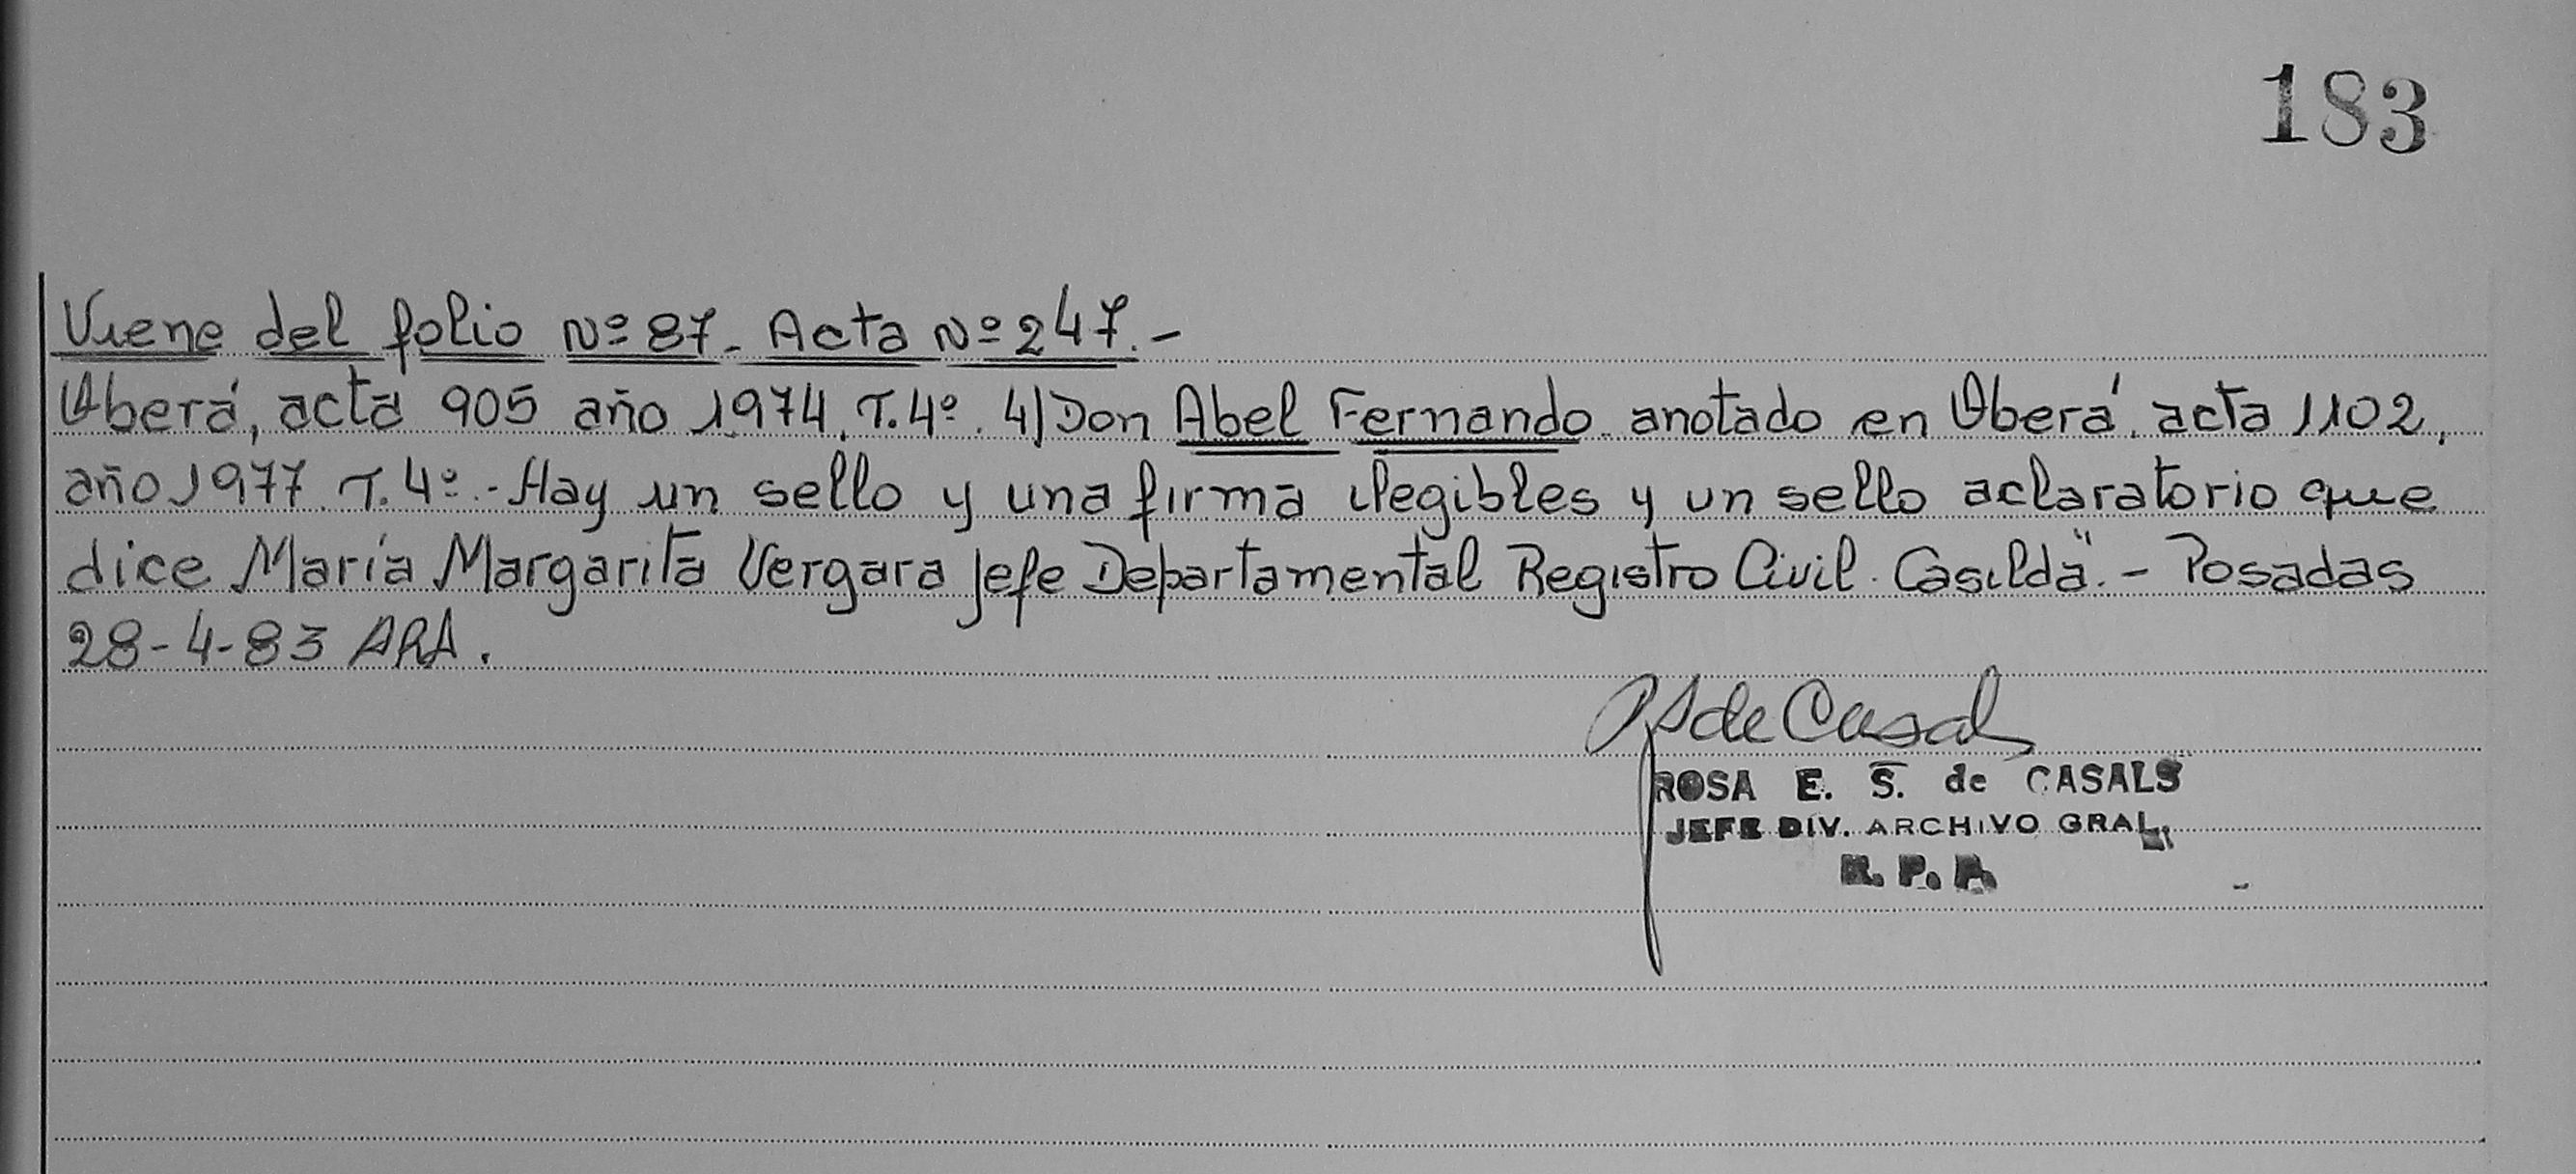 183
Viene del folio Nº 87. Acta Nº 247.-
Oberá, acta 905 año 1974. T. 4º. 4) Don Abel Fernando anotado en Oberá. acta 1102,
año 1977. T. 4º.- Hay un sello y una firma ilegibles y un sello aclaratorio que
dice María Margarita Vergara Jefe Departamental Registro Civil. Casilda".- Posadas
28-4-83 ARA.
RS de Casals
ROSA E. S. de CASALS
JEFE DIV. ARCHIVO GRAL.
R. P. P.